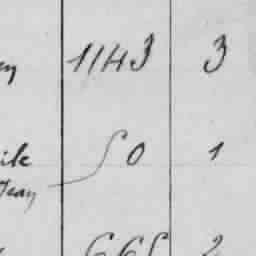 1143 3
ile 50 1
Jean
665 2